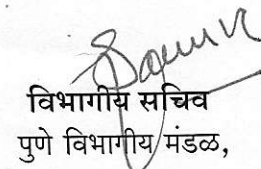 विभागीय सचिव
पुणे विभागीय मंडळ,